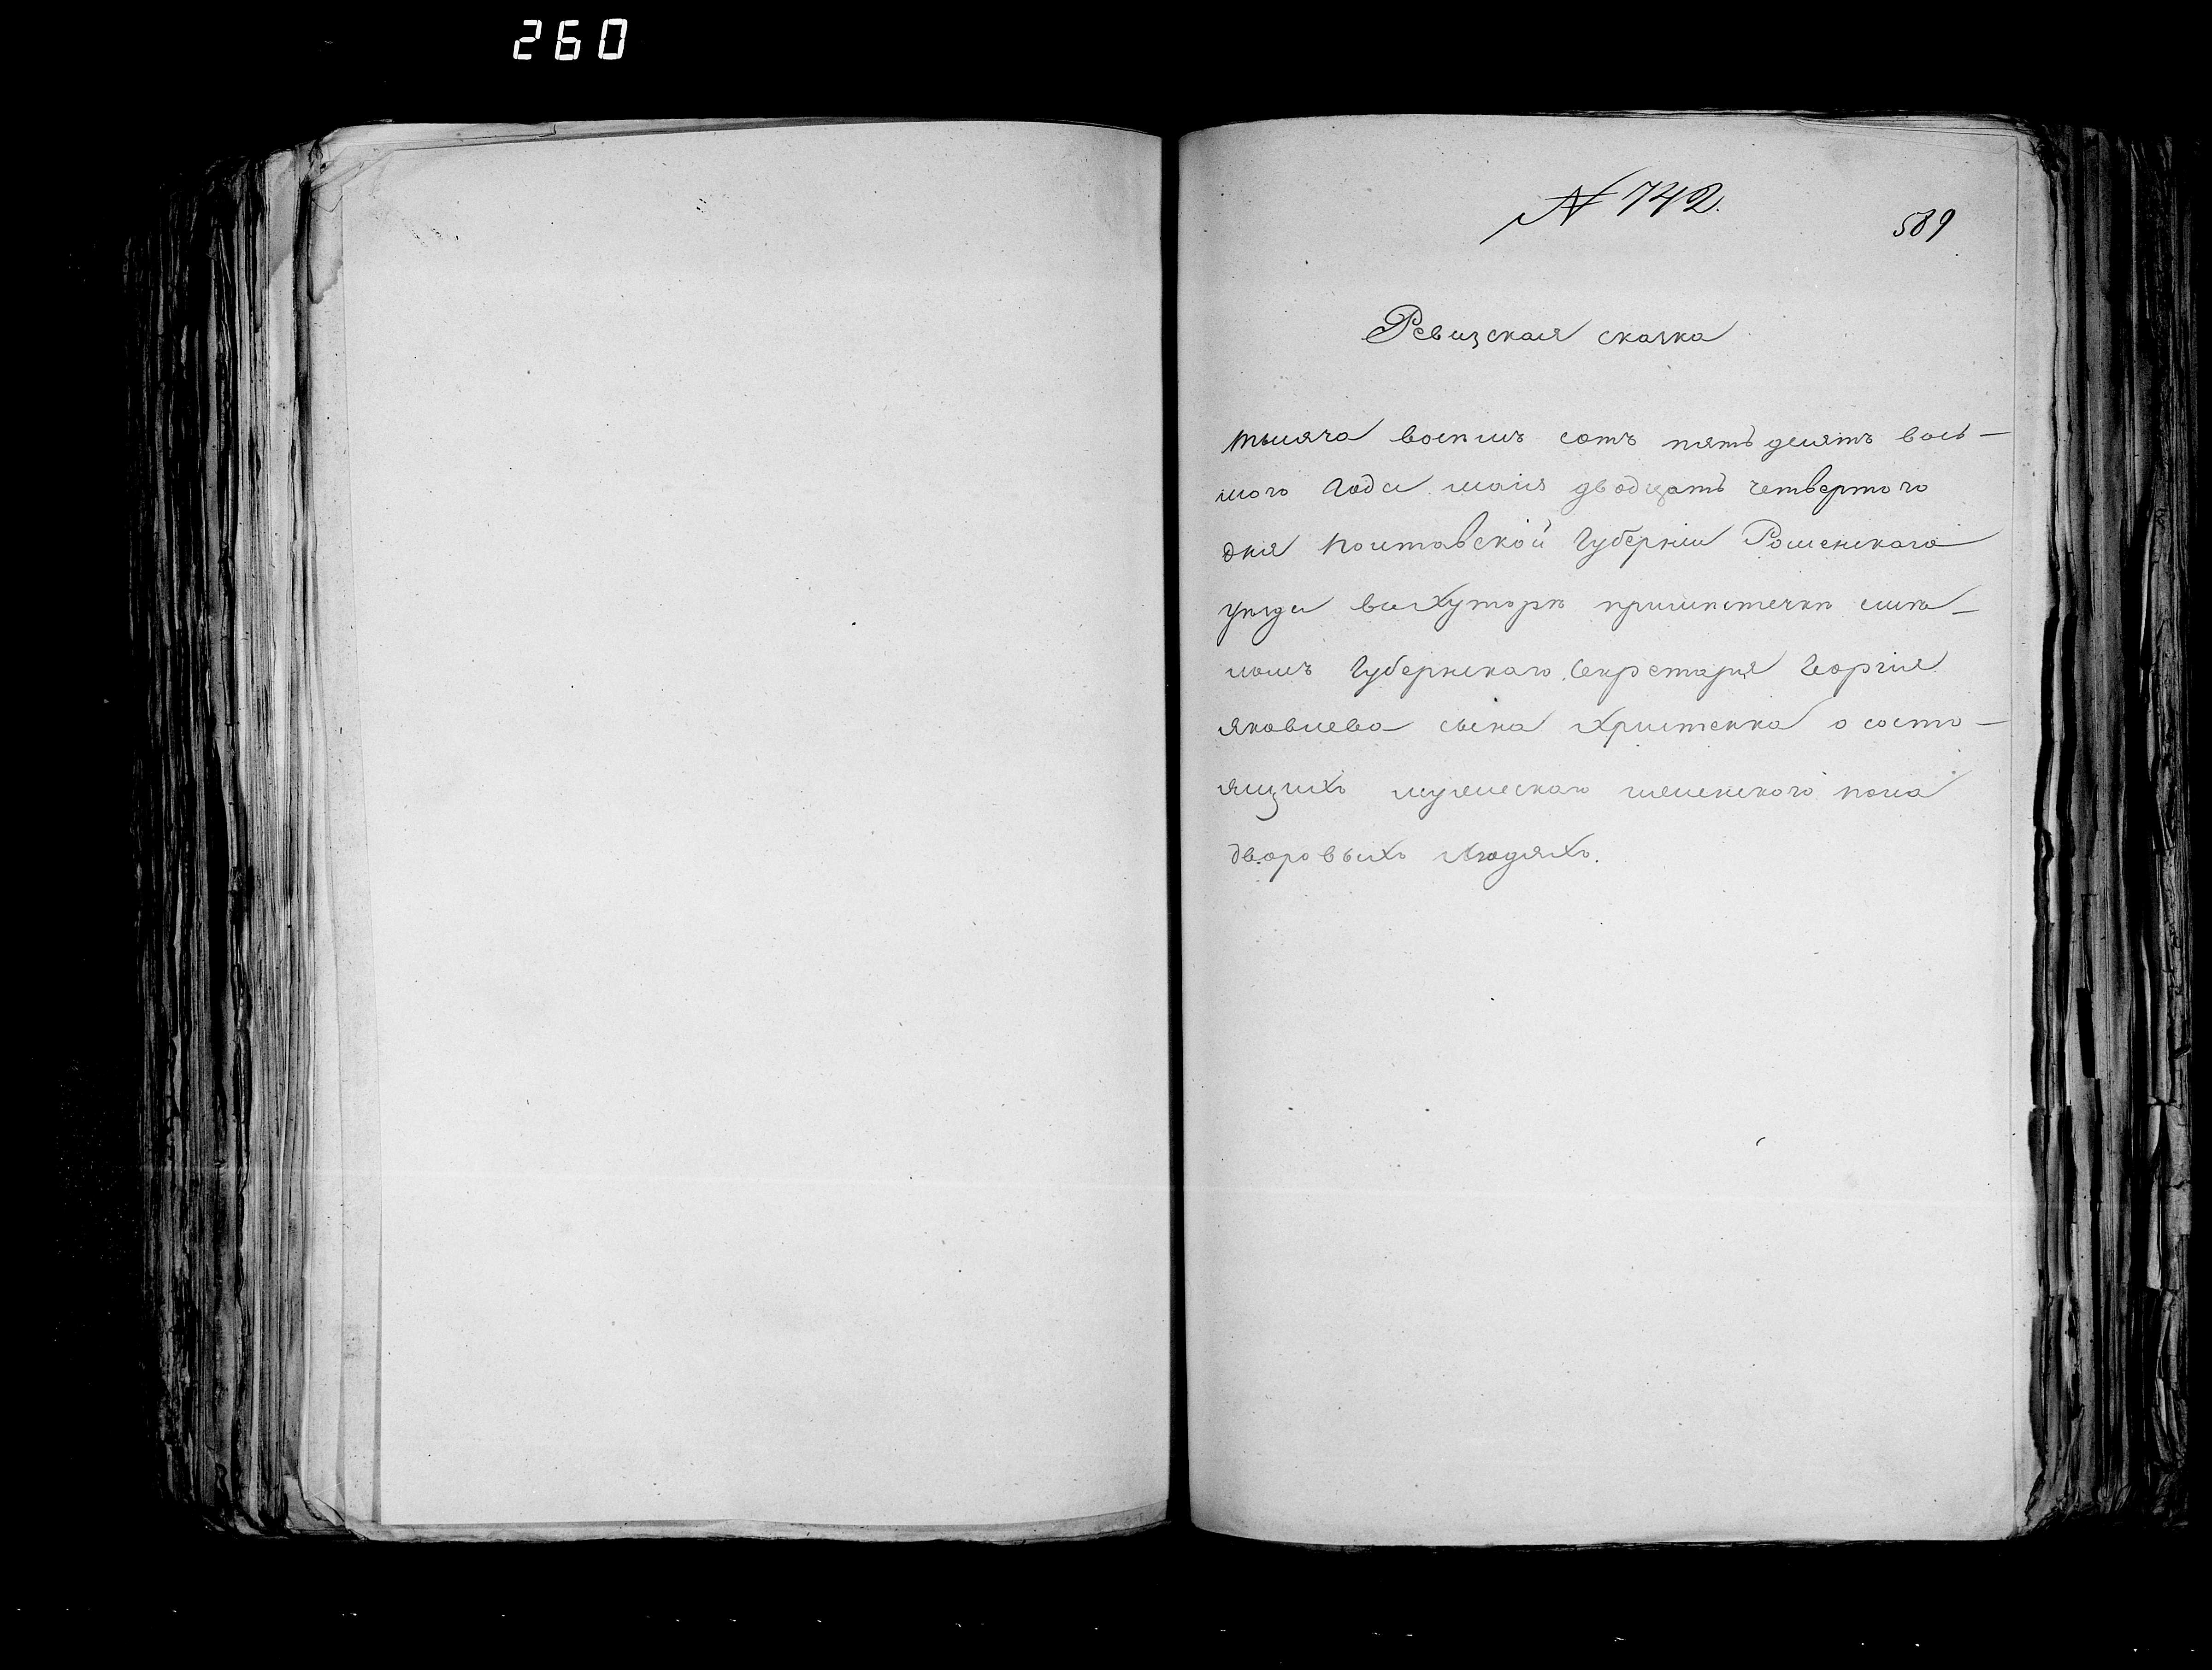 260
№ 742.
589
Ревизская сказка
тысяча восемъ сотъ пятьдесятъ вось-
мого года маия двадцать четвертого
дня Полтавской Губернии Роменскаго
уезда въ Хуторе приместечке
Губернскаго Секретаря Георгия
Яковлева сына Христенка о состо-
ящихъ мужескаго женскаго пола
дворовыхъ людяхъ.